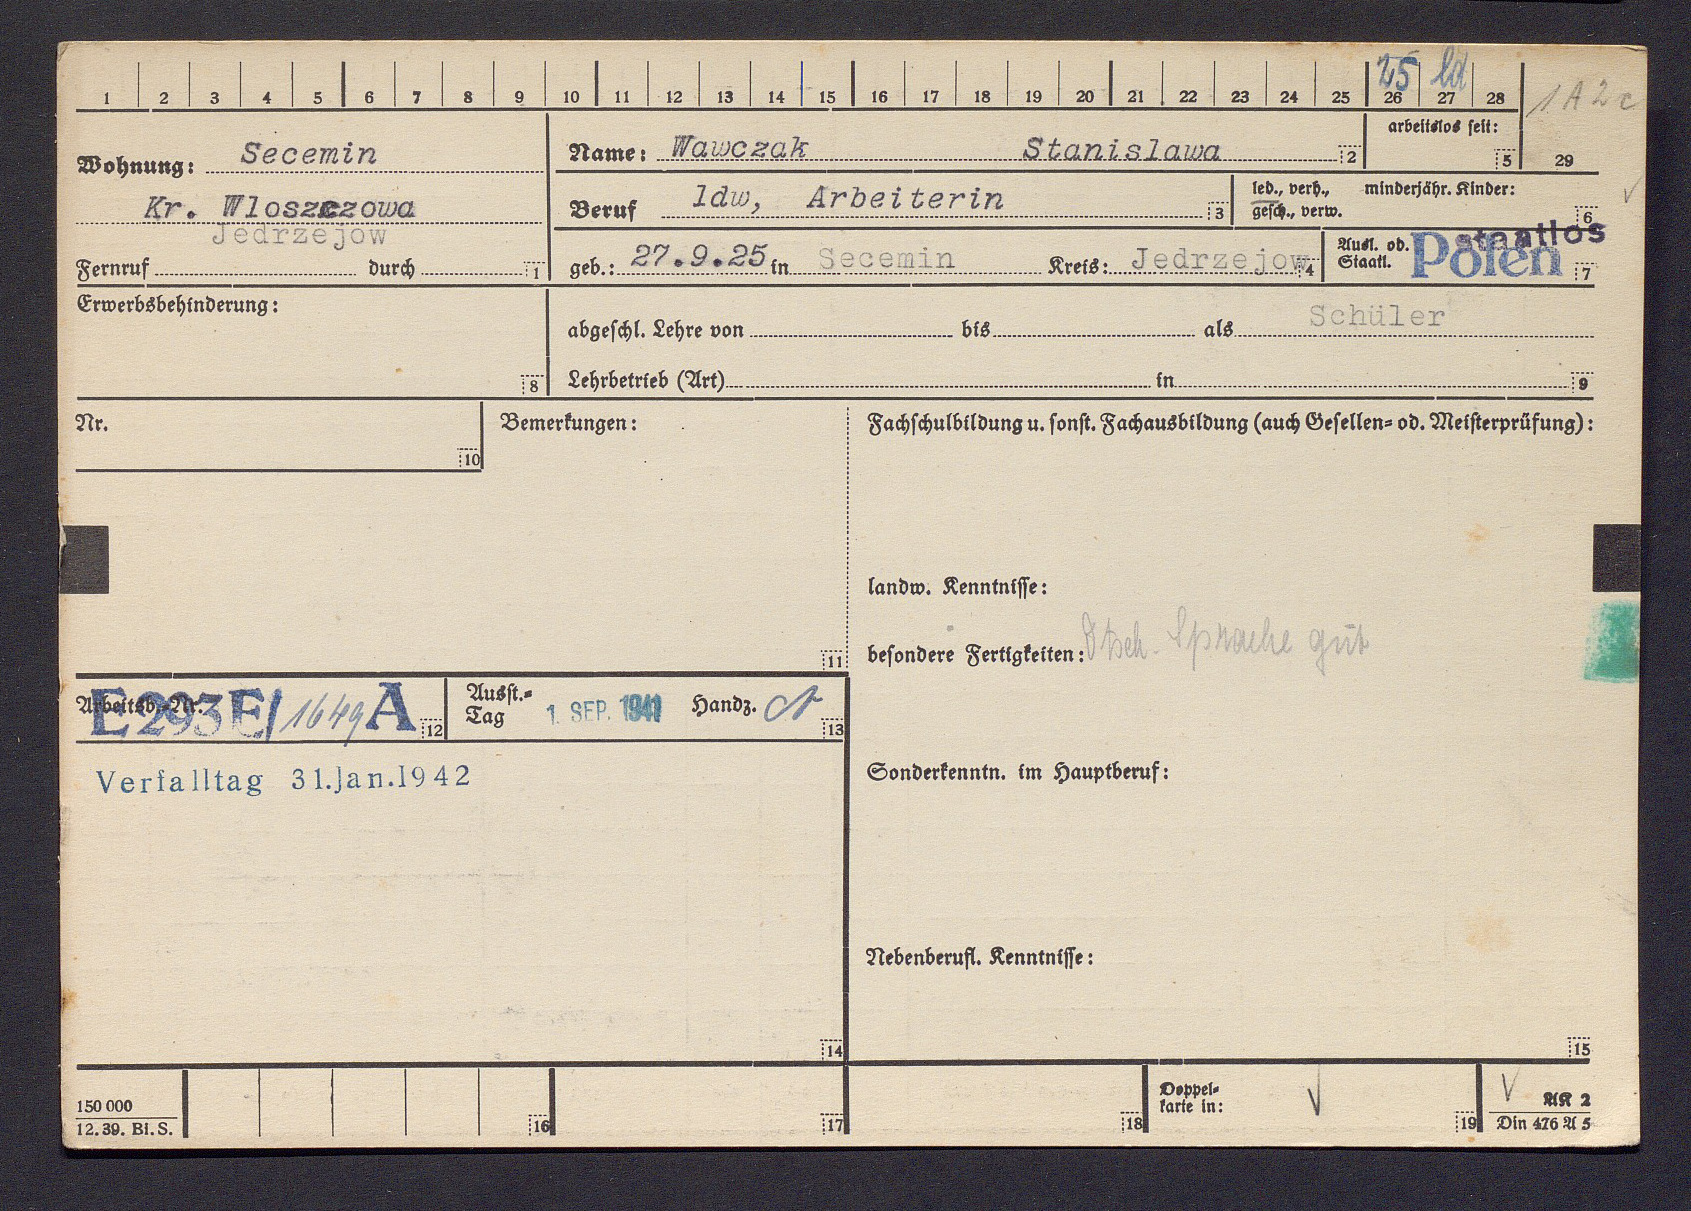 25 ld
1 2 3 4 5 6 7 8 9 10 11 12 13 14 15 16 17 18 19 20 21 22 23 24 25 26 27 28
1 A 2 c
29
Wohnung: Secemin
Kr. Wloszczowa
Jedrzejow
Fernruf durch 1
Name: Wawczak Stanislawa 2
arbeitslos seit: 5
Beruf ldw, Arbeiterin 3
led., verh., gesch., verw.
minderjähr. Kinder: 6
geb.: 27.9.25 in Secemin Kreis: Jedrzejow 4
Ausl. od. Staatl. Polen staatlos 7
Erwerbsbehinderung: 8
abgeschl. Lehre von bis als Schüler
Lehrbetrieb (Art) in 9
Nr. 10
Bemerkungen: 11
Fachschulbildung u. sonst. Fachausbildung (auch Gesellen- od. Meisterprüfung):
landw. Kenntnisse:
besondere Fertigkeiten: Dtsch. Sprache gut
Arbeitsb.-Nr. E293E/1649 A 12
Ausst.-Tag 1. SEP. 1941 Handz. 13
Verfalltag 31.Jan.1942
14
Sonderkenntn. im Hauptberuf:
Nebenberufl. Kenntnisse:
15
150 000
12.39. Bi.S.
16
17
18
Doppel-
karte in: 19
AK 2
Din 476 A 5